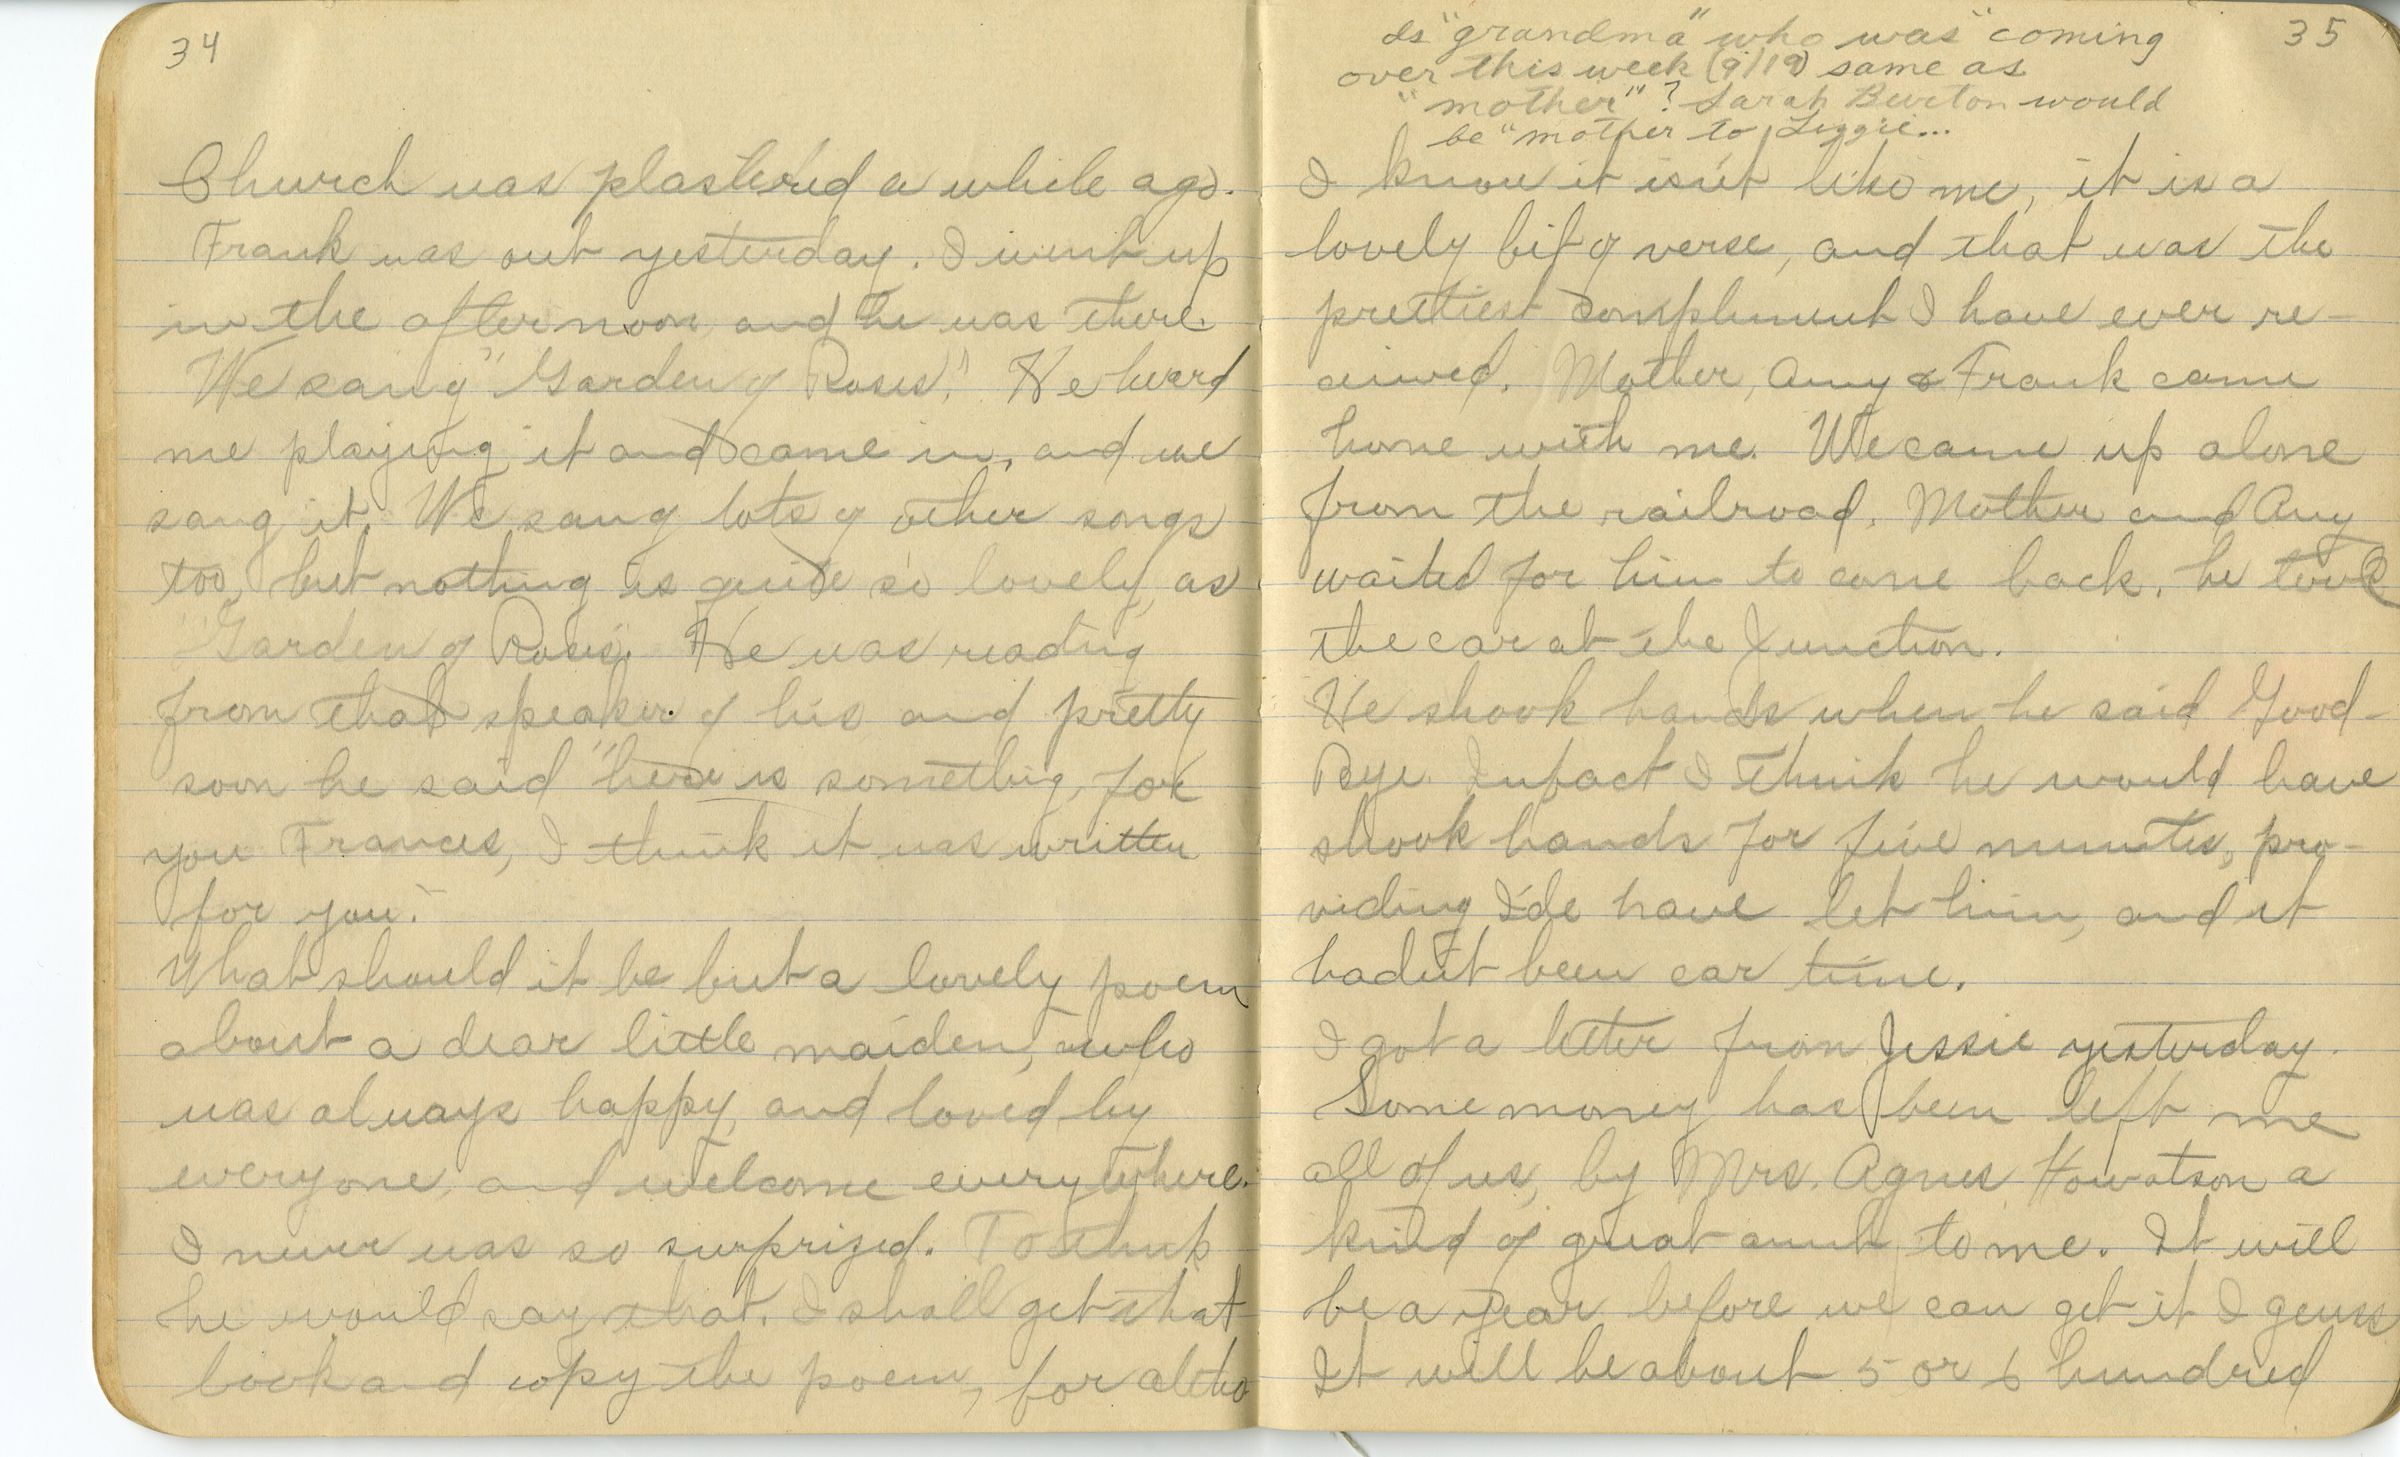 34
Church was plastered a while ago.
Frank was out yesterday. I went up
in the afternoon and he was there.
We sang "Garden of Roses." He heard
me playing it and came in, and we
sang it. We sang lots of other songs
too, but nothing is quite so lovely as
"Garden of Roses". He was reading
from that speaker of his and pretty
soon he said "here is something, for
you Frances, I think it was written
for you."
What should it be but a lovely poem
about a dear little maiden, who
was always happy, and loved by
everyone, and welcome everywhere.
I never was so surprized. To think
he would say that. I shall get that
book and copy the poem, for altho
35
Is "grandma" who was "coming
over this week (9/19) same as
"mother"? Sarah Burton would
be "mother to Lizzie...
I know it isn't like me, it is a
lovely bit of verse, and that was the
prettiest compliment I have ever re-
ceived. Mother, Amy & Frank came
home with me. We came up alone
from the railroad. Mother and Amy
waited for him to come back. he took
the car at the Junction.
He shook hands when he said Good-
Bye. Infact I think he would have
shook hands for five minutes, pro-
viding I'de have let him, and it
hadn't been car time.
I got a letter from Jessie yesterday.
Some money has been left me
all of us, by Mrs. Agnes Howatson a
kind of great aunt to me. It will
be a year before we can get it I geuss
It will be about 5 or 6 hundred